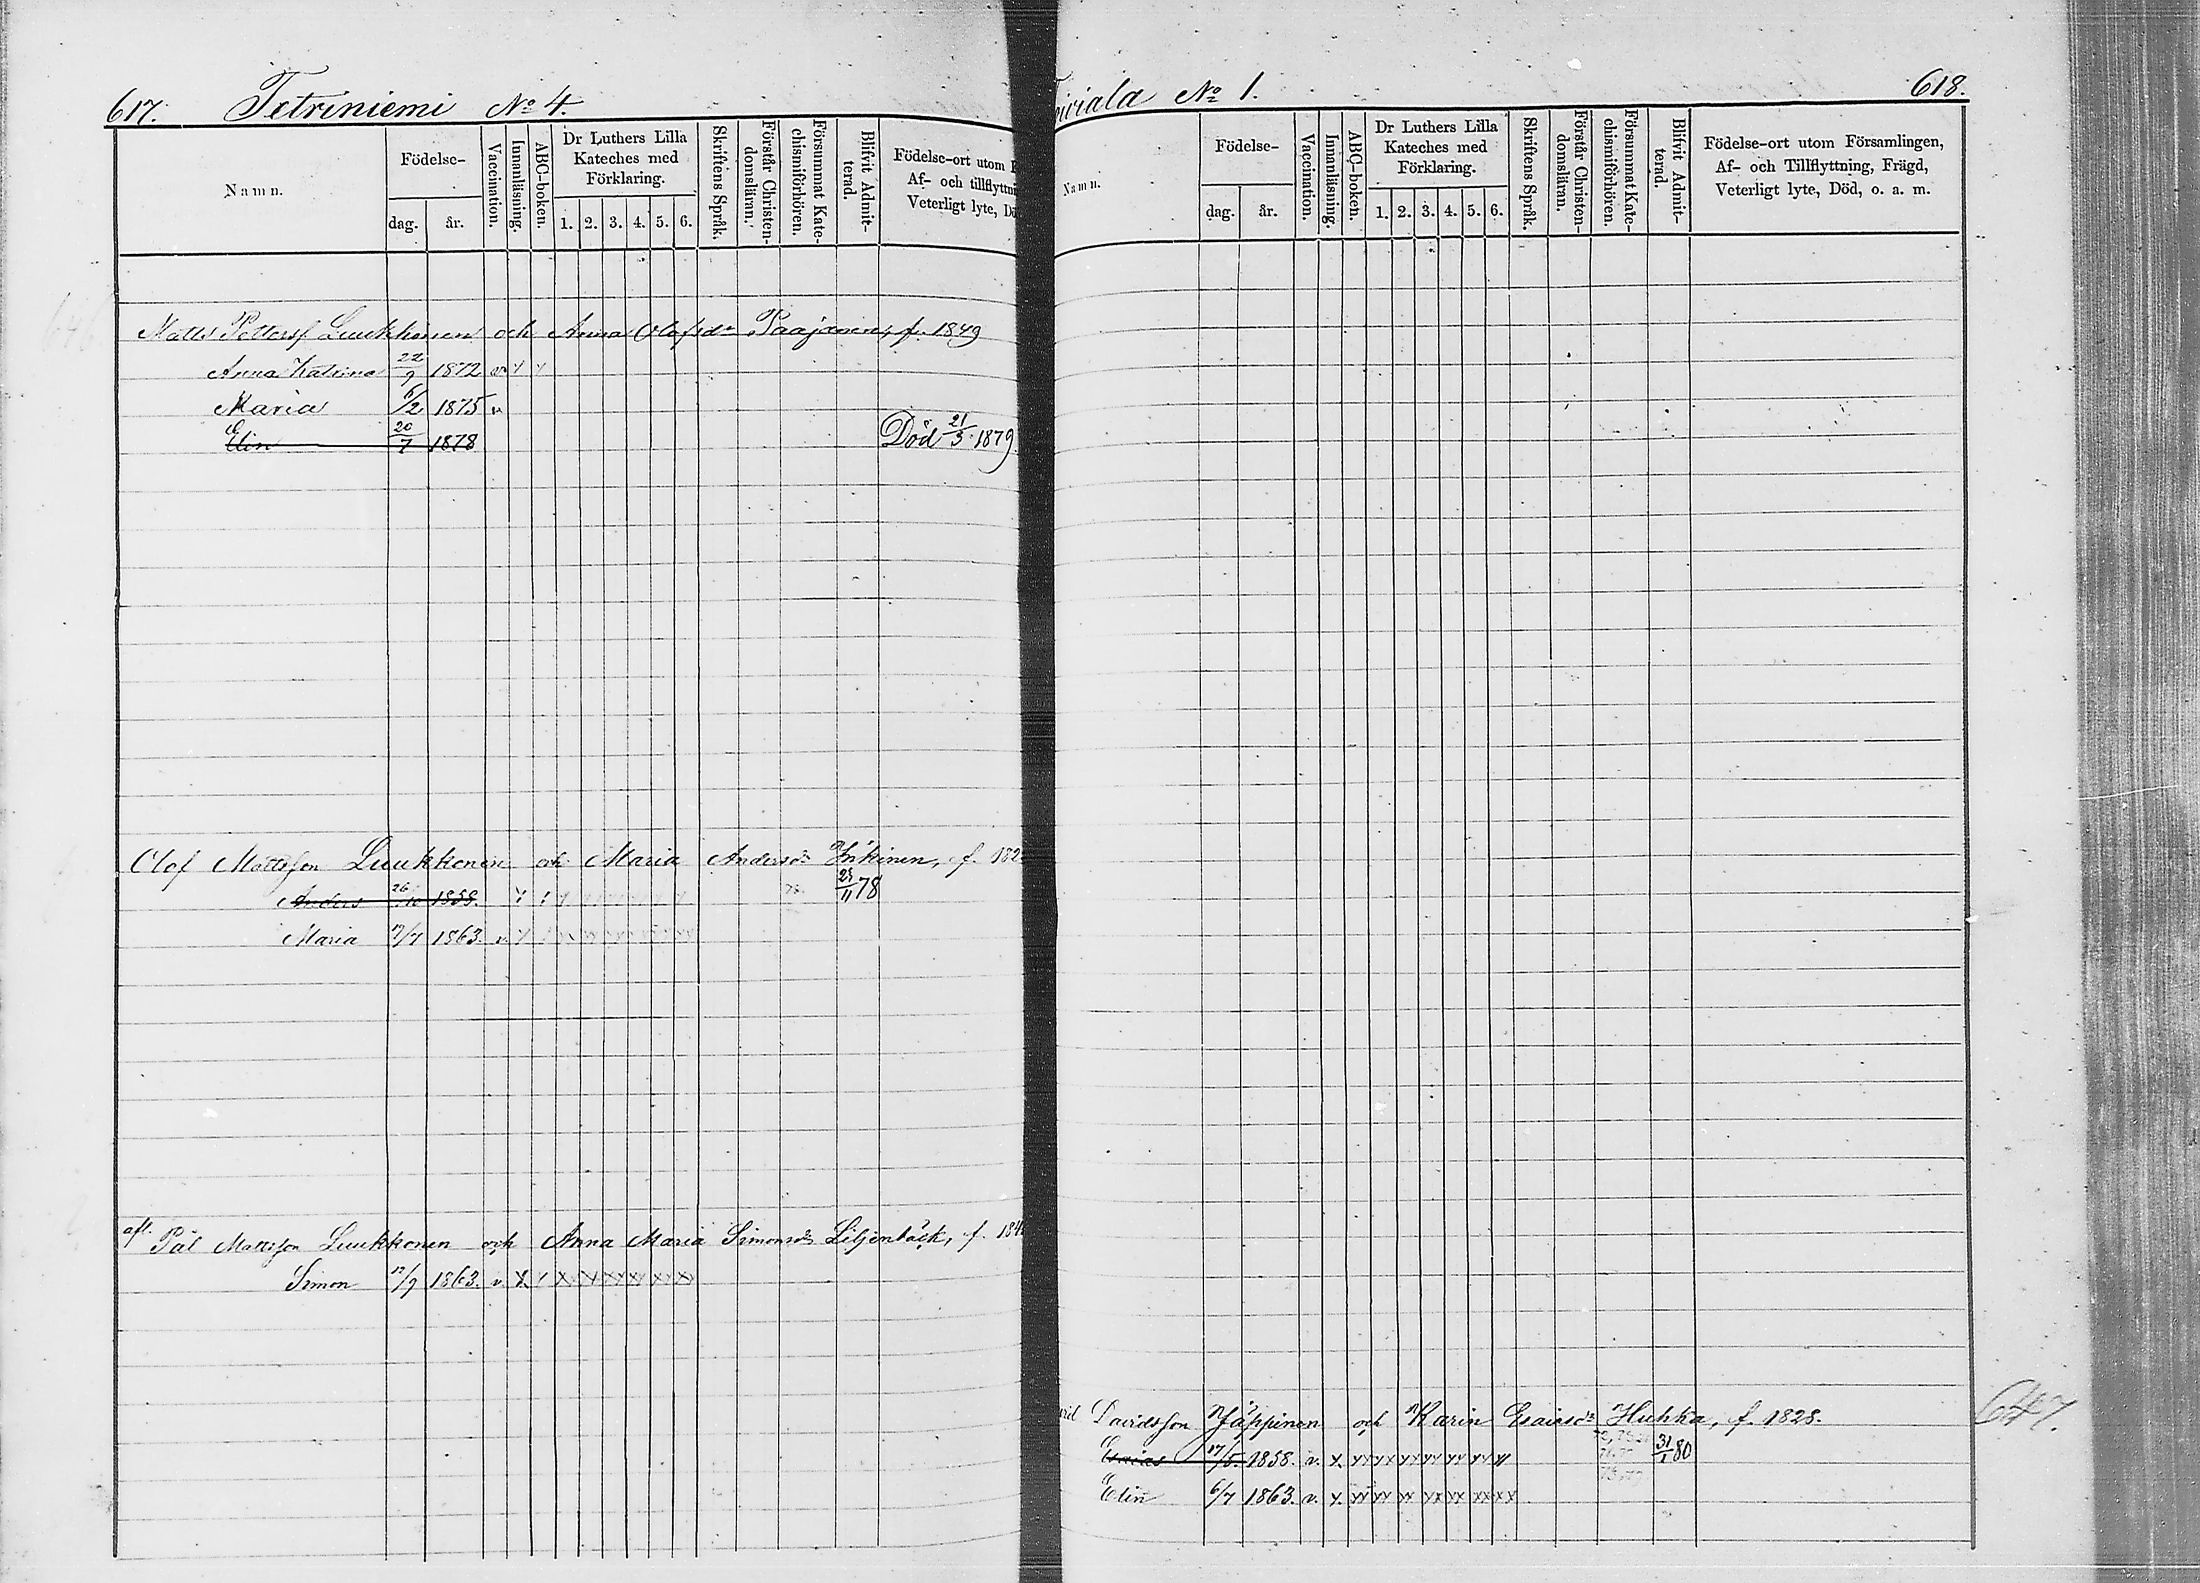 617. Tetriniemi No 4.
Namn.
Födelse-
dag. år.
Vaccination.
Innanläsning.
ABC-boken.
Dr Luthers Lilla Kateches med Förklaring.
1. 2. 3. 4. 5. 6.
Skriftens Språk.
Förstår Christen-domsläran.
Försummat Kate-chismiförhören.
Blifvit Admit-terad.
Födelse-ort utom
Af- och tillflyttni
Veterligt lyte, Dö
Matts Pettersf Luukkonen och Anna Olofsdr Paajanen, f. 1849
Anna Katrina 22/9 1872 v
Maria 6/2 1875 v
Elin 20/7 1878 Död 21/3 1879.
Olof Mattsson Luukkonen och Maria Andersdr Inkinen, f. 182
Anders 26/10 1858. 78
Maria 1863. v.
afl. Pål Mattsson Luukkonen och Anna Maria Simonsdr Liljenbäck, f. 184
Simon 12/9 1863. v. X
iviala No 1. 618.
Namn.
Födelse-
dag. år.
Vaccination.
Innanläsning.
ABC-boken.
Dr Luthers Lilla Kateches med Förklaring.
1. 2. 3. 4. 5. 6.
Skriftens Språk.
Förstår Christen-domsläran.
Försummat Kate-chismiförhören.
Blifvit Admit-terad.
Födelse-ort utom Församlingen,
Af- och Tillflyttning, Frägd,
Veterligt lyte, Död, o. a. m.
Davidsson Jäppinen och Karin Esaiasdr Huhka, f. 1828.
Esaias 17/5. 1858. v. x. 31/1 80
Elin 6/7 1863. v. x.
647.